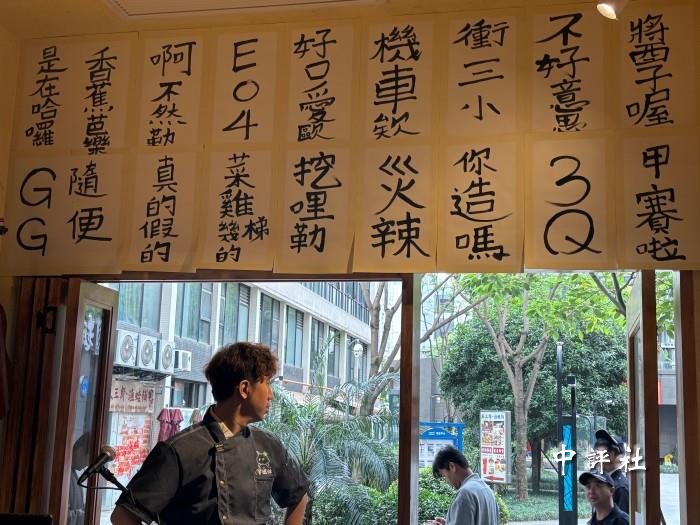 醬子喔
不好意思
衝三小
機車欸
好口愛歐
E04
啊不然勒
香蕉芭樂
是在哈囉
甲賽啦
3Q
你造嗎
災辣
挖哩勒
菜雞幾梯的
真的假的
隨便
GG
中評社